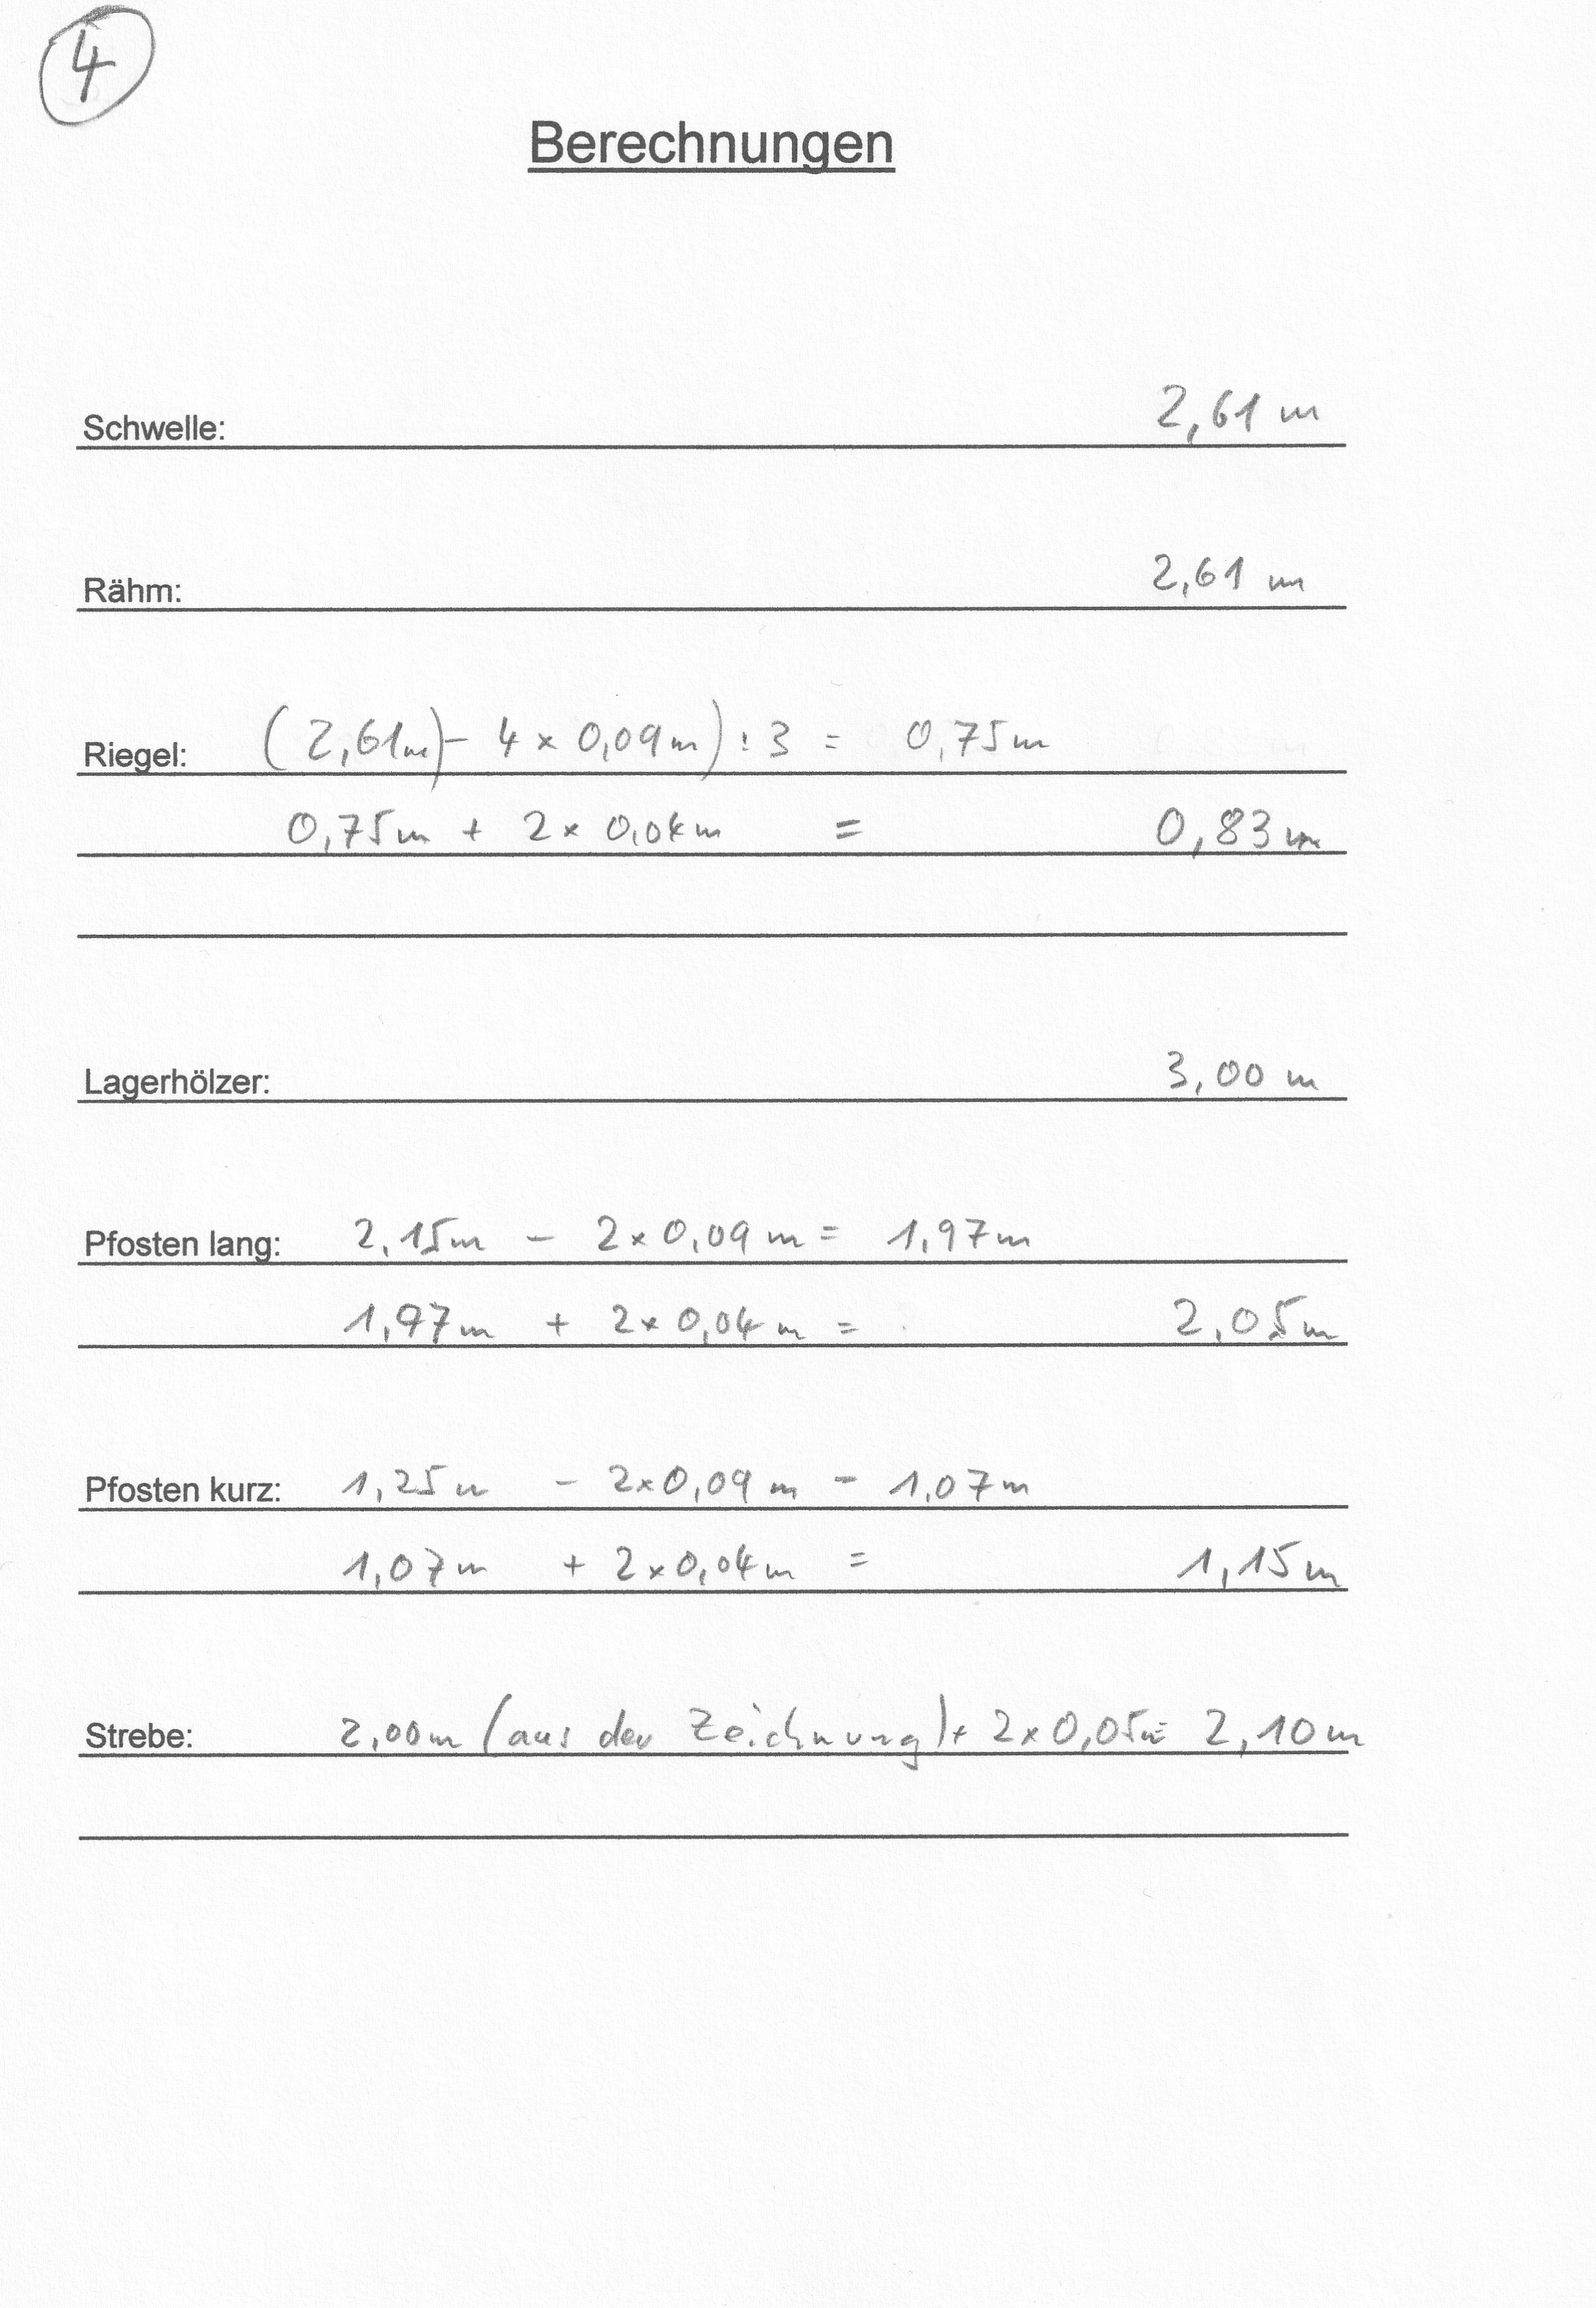 4
Berechnungen
Schwelle: 2,61 m
Rähm: 2,61 m
Riegel: (2,61m) - 4 x 0,09m) : 3 = 0,75m
0,75m + 2 x 0,04m = 0,83m
Lagerhölzer: 3,00 m
Pfosten lang: 2,15m - 2 x 0,09 m = 1,97m
1,97m + 2 x 0,04 m = 2,05m
Pfosten kurz: 1,25m - 2 x 0,09 m = 1,07m
1,07m + 2 x 0,04m = 1,15m
Strebe: 2,00m (aus der Zeichnung) + 2 x 0,05m = 2,10m